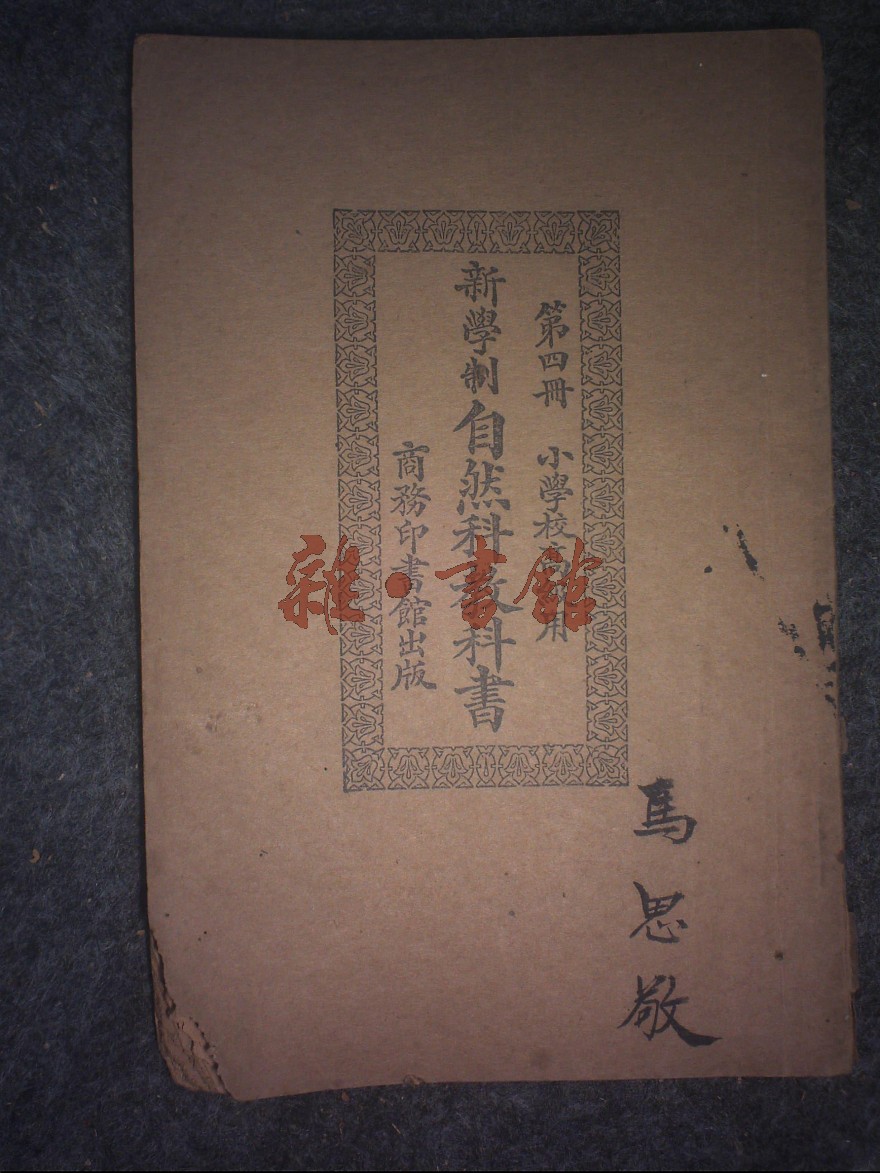 第四冊 小學校初級用
新學制自然科教科書
商務印書館出版
雜·書館
馬思敬